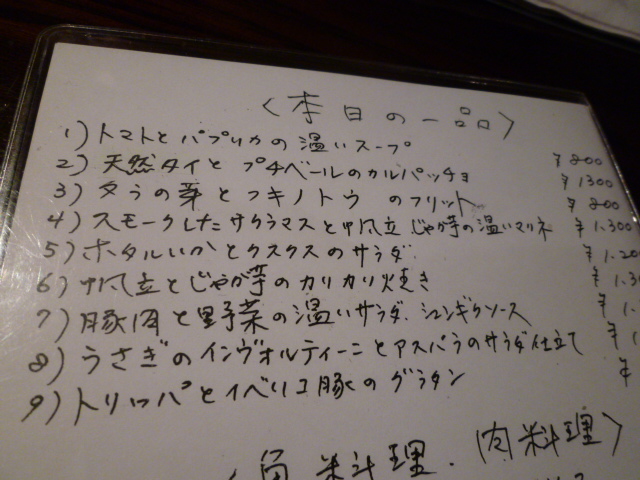 〈本日の一品〉
1) トマトとパプリカの温いスープ ¥800
2) 天然タイとプチベールのカルパッチョ ¥1300
3) タラの芽とフキノトウのフリット ¥800
4) スモークしたサクラマスと帆立じゃが芋の温いマリネ ¥1.300
5) ホタルいかとクスクスのサラダ ¥1.20
6) 帆立とじゃが芋のカリカリ焼き ¥1.3
7) 豚肉と野菜の温いサラダ. シュンギクソース ¥1.
8) うさぎのインヴォルティーニとアスパラのサラダ仕立て ¥1
9) トリッパとイベリコ豚のグラタン ¥
〈魚料理. 肉料理〉